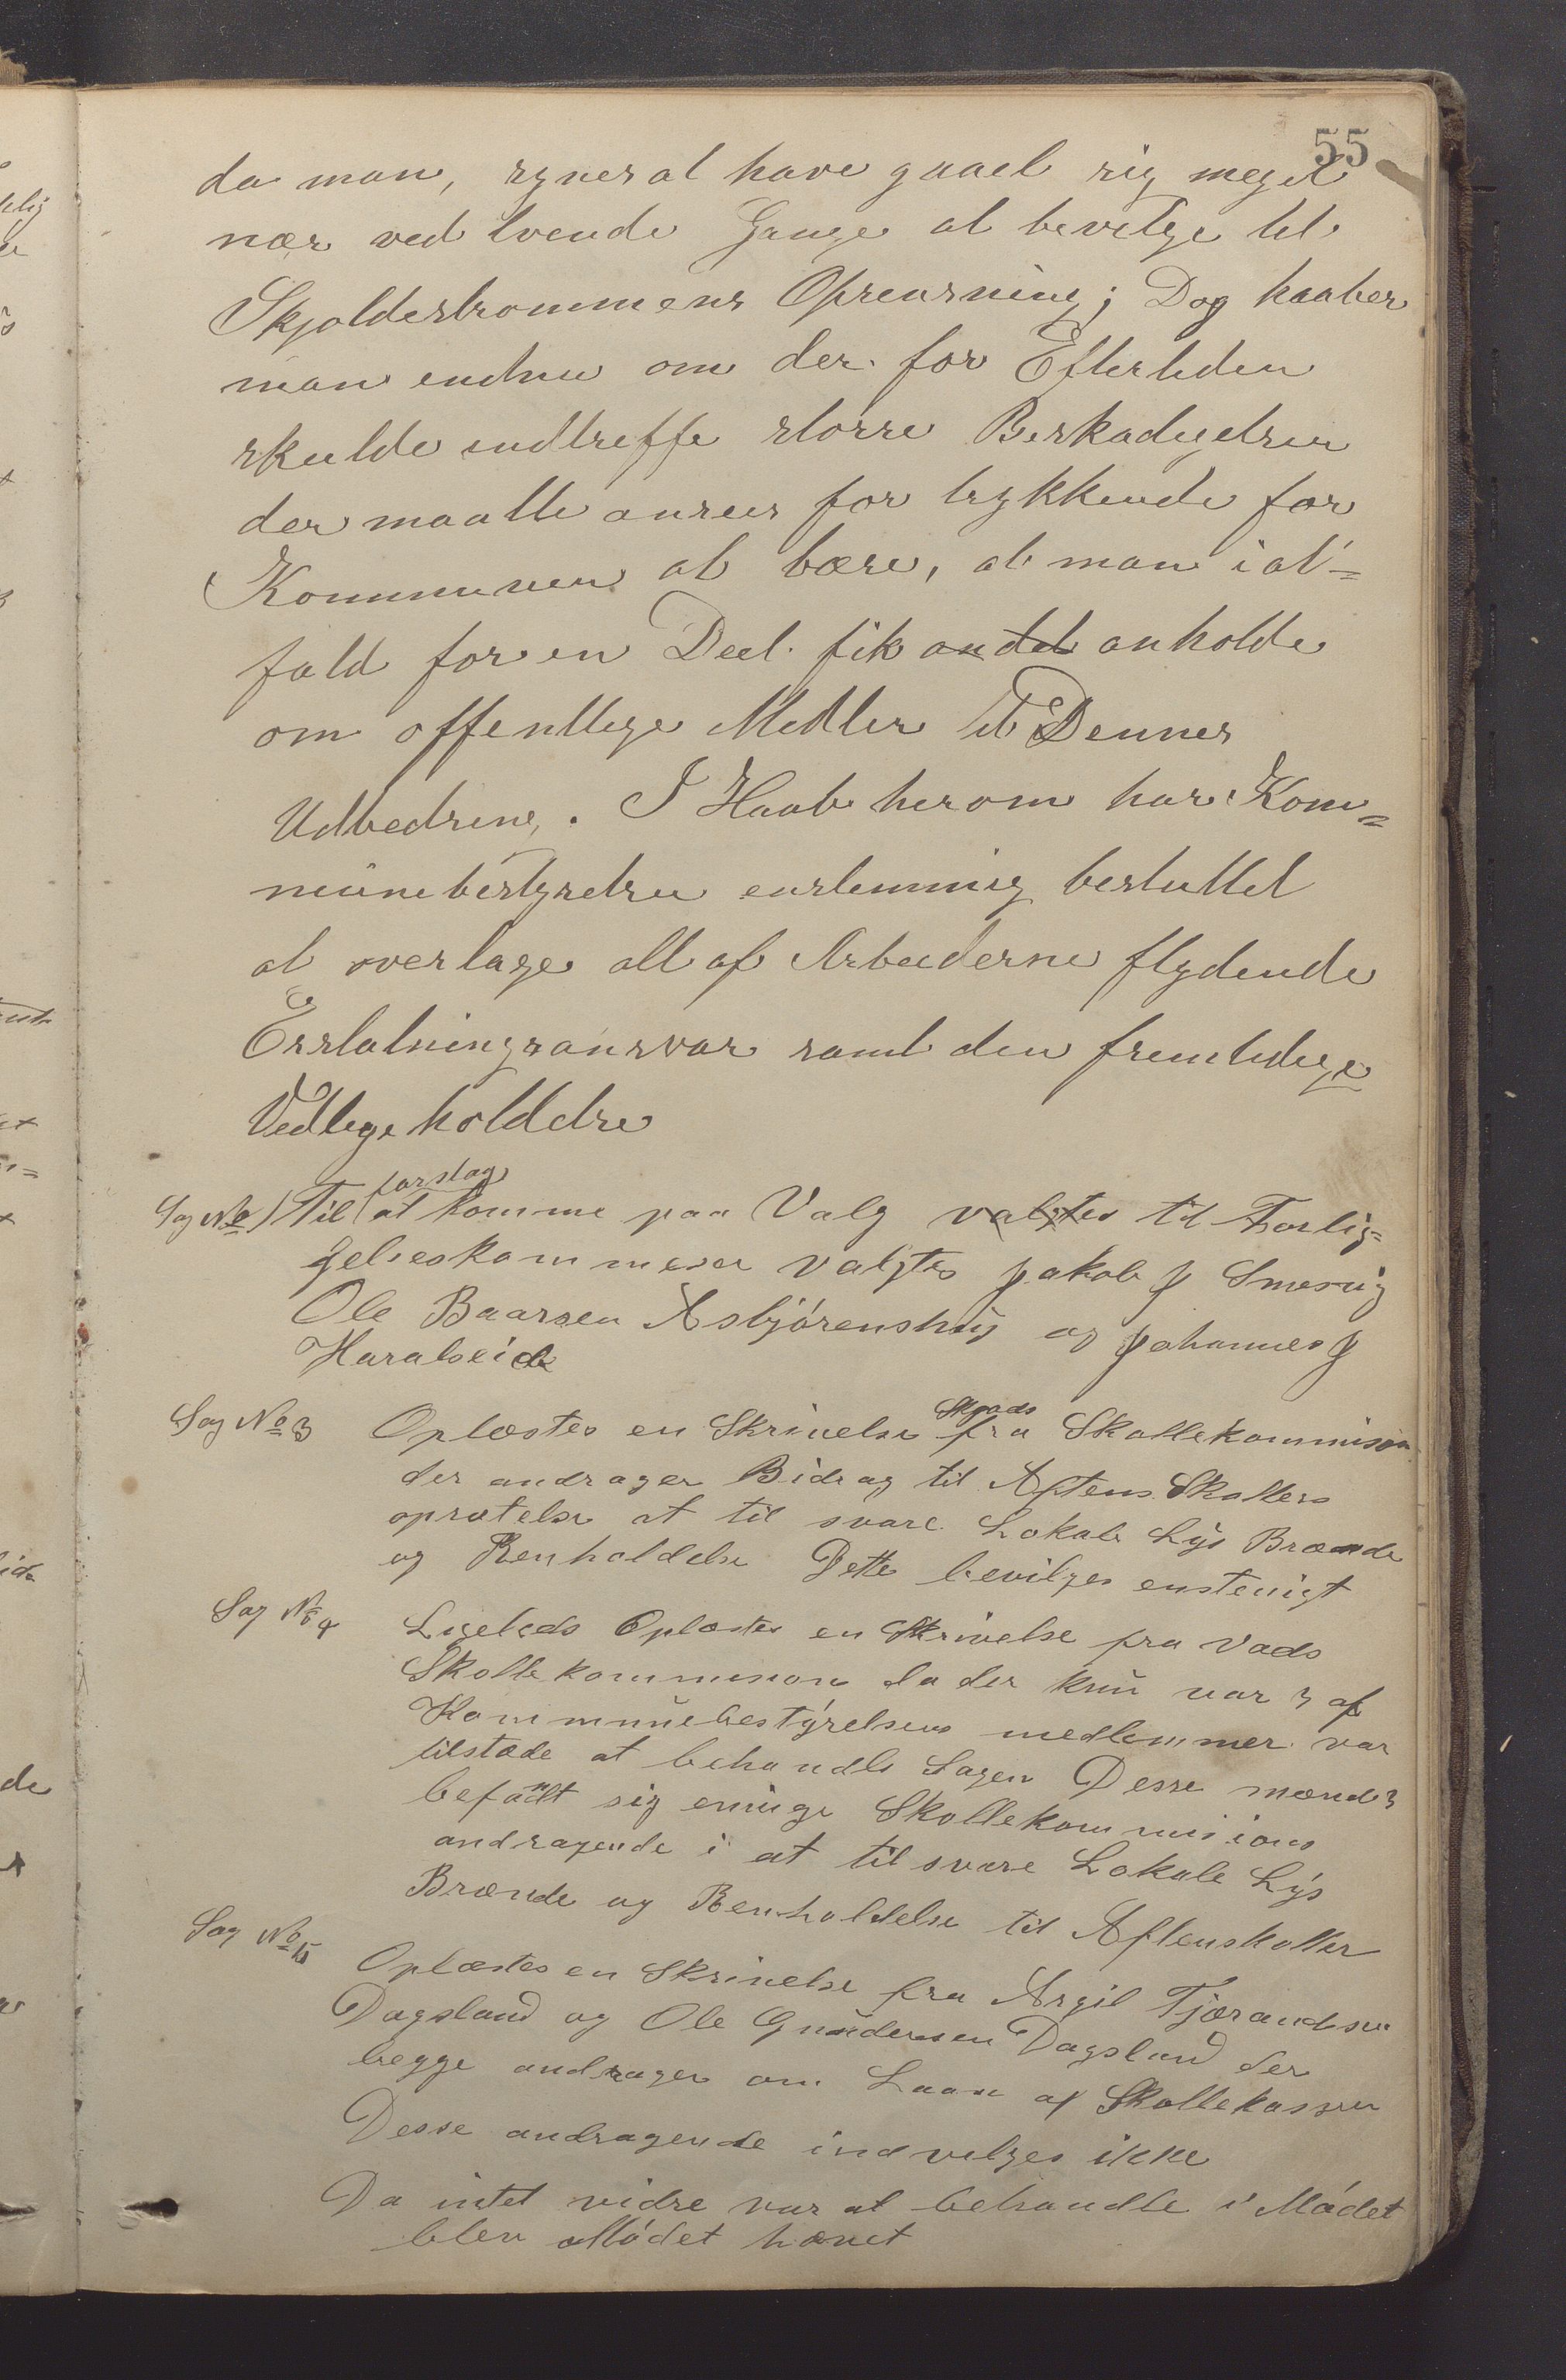 55
da man, synes at have gaaet sig meget
nær ved tvende Gange at bevilge til
Skjoldestrømmens Oprensning; Dog haaber
man endnu om der for Eftertiden
skulde indtreffe større Beskadigelser
der maatte ansees for trykkende for
Kommunen at bære, at man i al=
fald for en Deel fik andet anholde
om offentlige Midler til Dennes
Udbedring. I Haab herom har Kom=
munebestyrelsen enstemmig besluttet
at overtage alt af Arbeiderne flydende
Erstatningsansvar samt den fremtidige
Vedligeholdelse
forslag
Sag No Til at komme paa Valg valgtes til Forlig=
gelseskommeser valgtes Jakob J Smevig
Ole Baarsen Asbjørenshuj og Johannes J
Haralseide
Skjolds
Sag No 3 Oplæstes en Skrivelse fra Skollekommision
der andrager Bidrag til Aftens Skollers
oprætelse at til svare Lokale Lys Brænde
og Renholdelse Dette bevilges enstemigt
Sag No 4 Ligeleds Oplæstes en Skrivelse fra Vads
Skollekommision da der kun var 3 af
Kommunebestyrelsens medlemmer var
tilstæde at behandle Sagen Desse mænd
befandt sig eninge Skollekommisions
andragende i at til svare Lokale Lys
Brænde og Renholdelse til Aftenskoller
Sag No 5
Oplæstes en Skrivelse fra Argil Tjærandsen
Dagsland og Ole Gundersen Dagsland der
begge andrager om Laan af Skollekassen
Desse andragende indvilges ikke
Da intet vidre var at behandle i Mødet
blev Mødet hævet